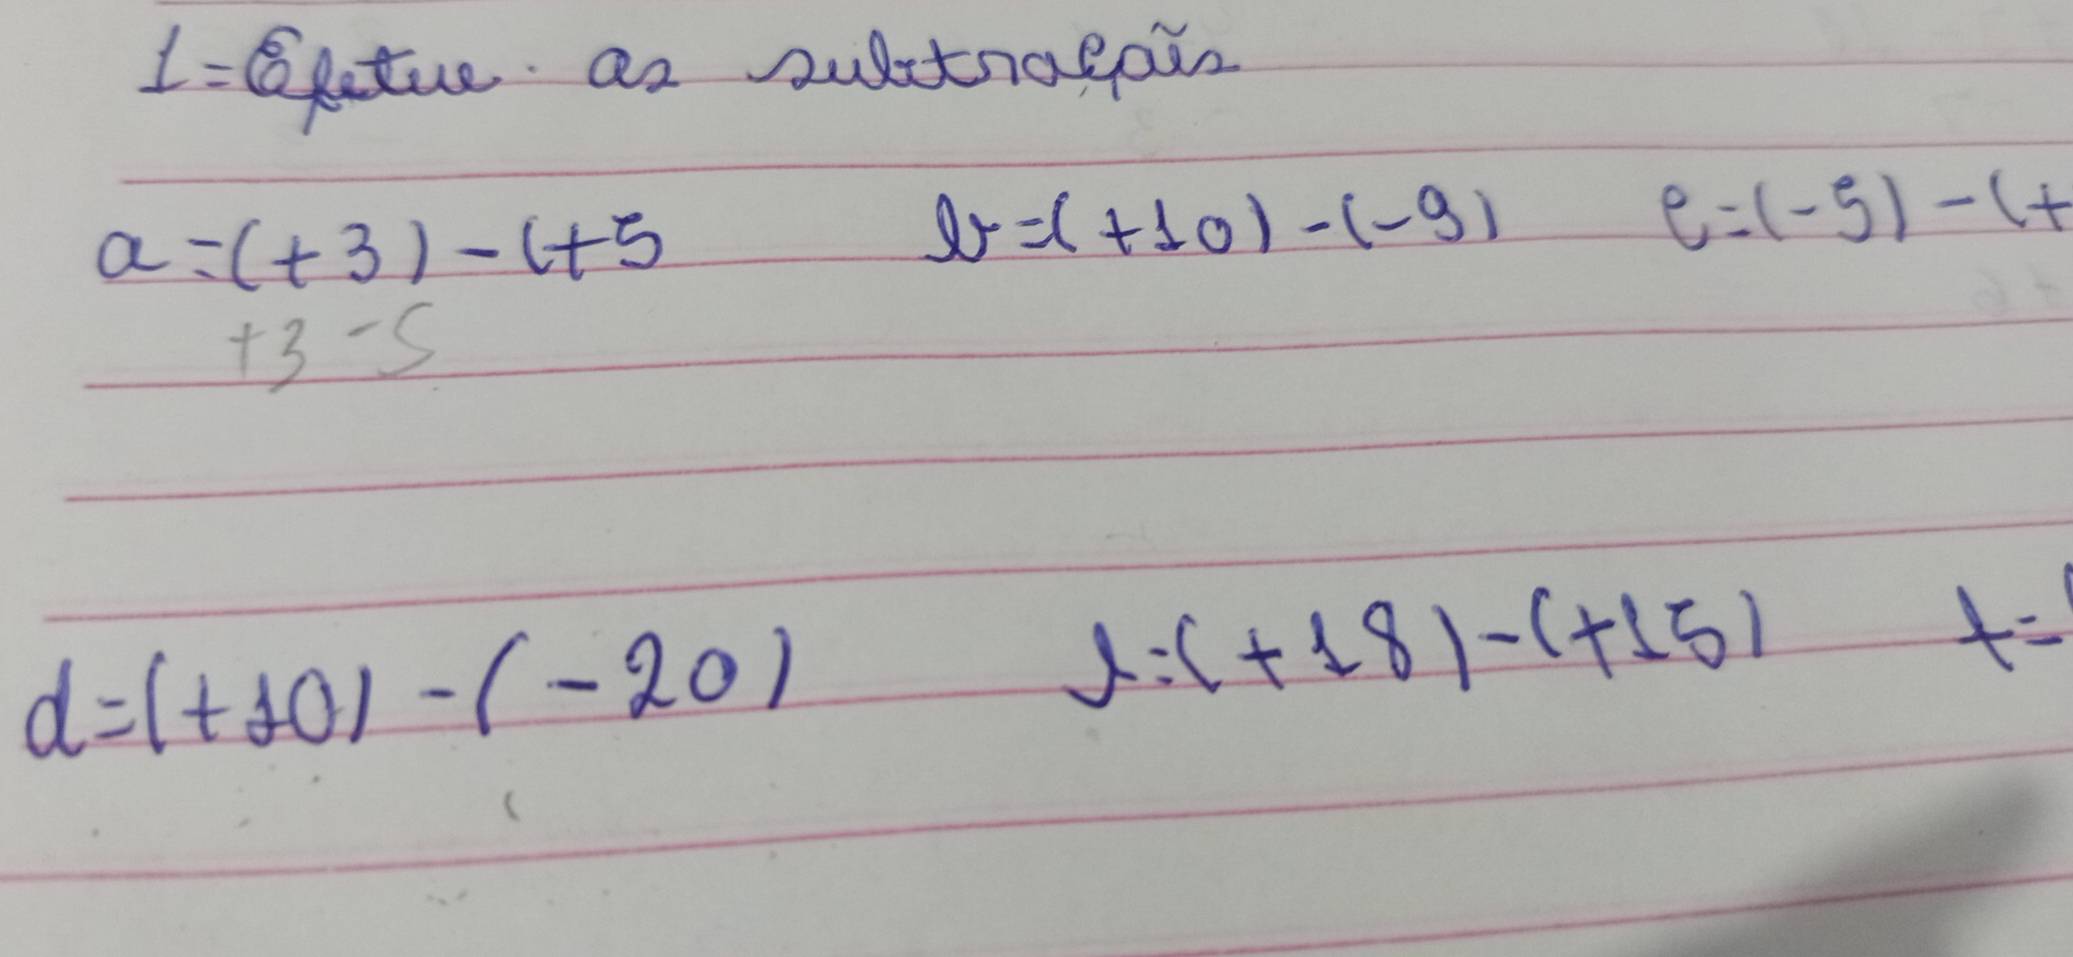 1=Efetue as subtraçõis
a=(+3)-(+5 b=(+10)-(-9) c=(-5)-(+
+3-5
d=(+10)-(-20) e=(+18)-(+15) f=(